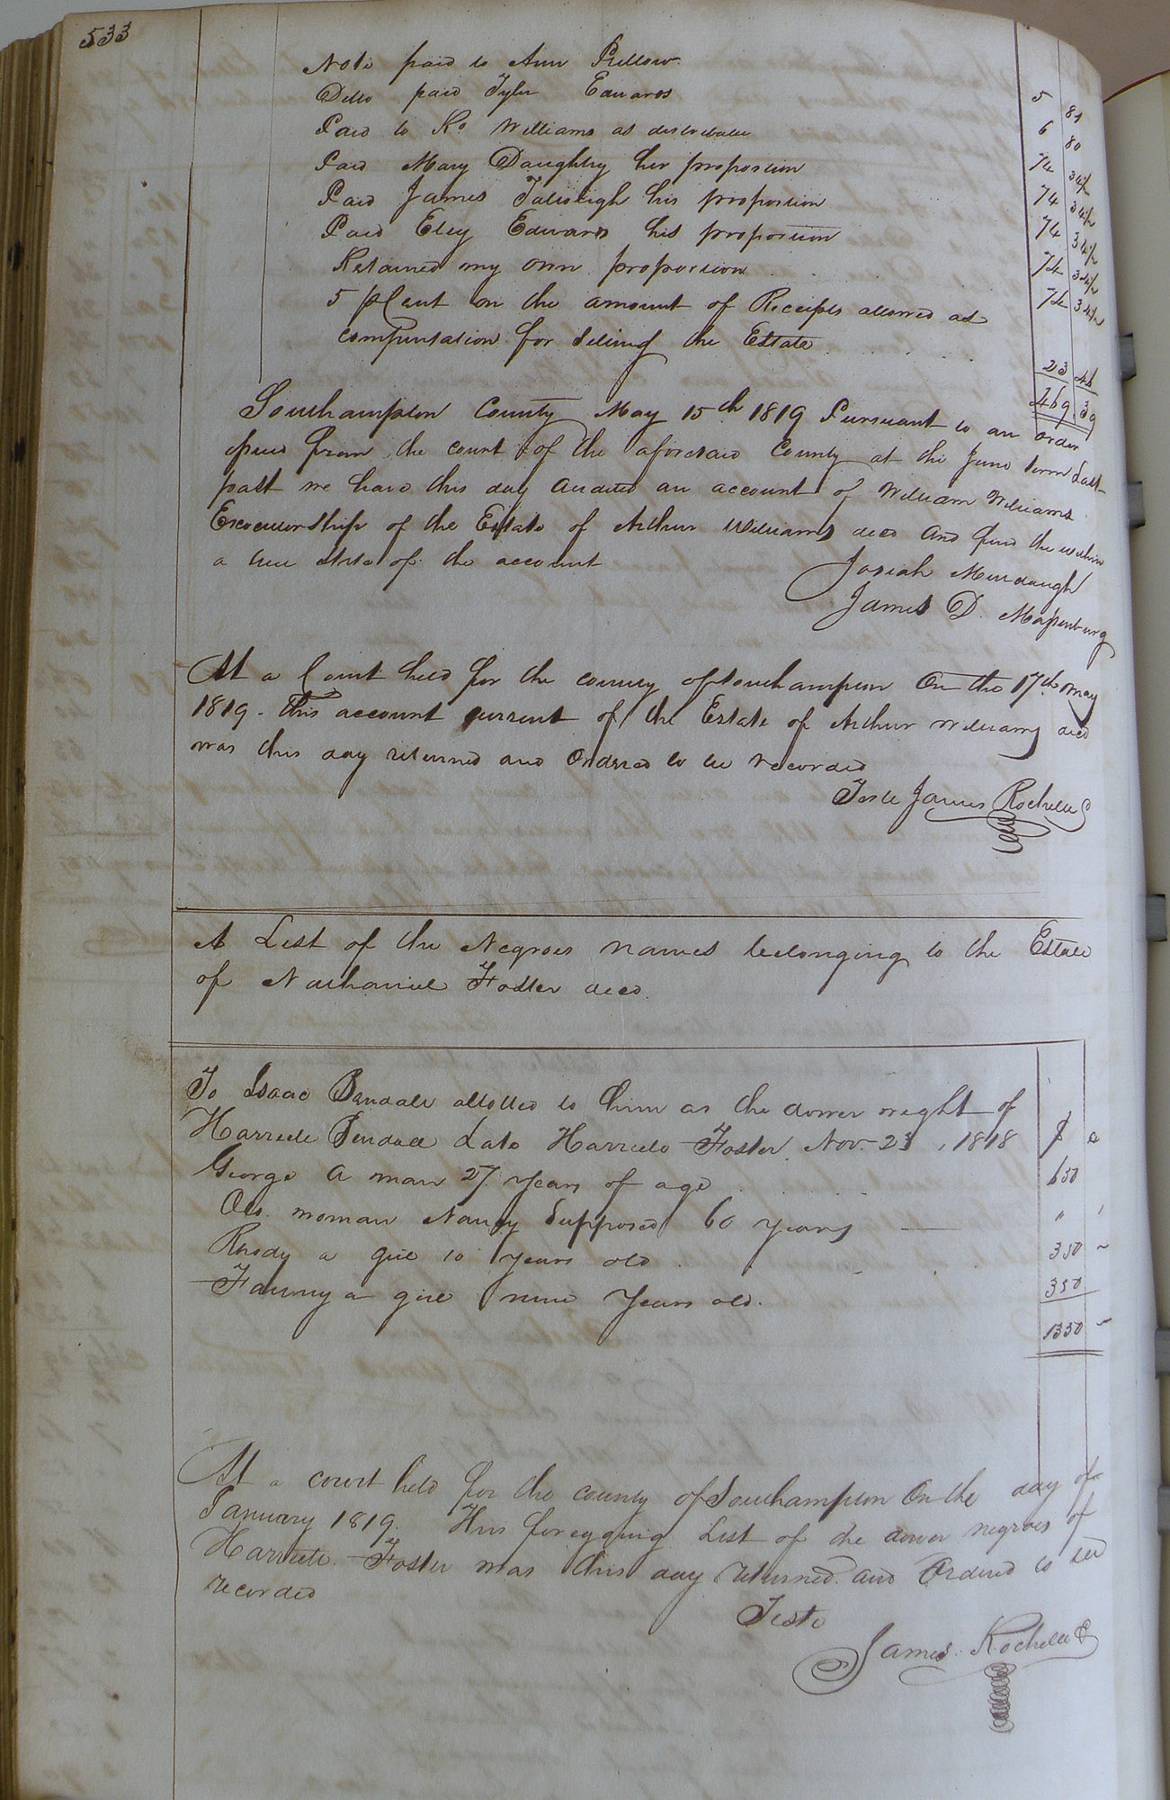 533
Note paid to Ann Pullow
Ditto paid Tyler Edwards 5 81
Paid to Ro Williams as distributee 6 80
Paid Mary Daughtry her proportion 74 34½
Paid James Taliough his proportion 74 34½
Paid Eley Edwards his proportion 74 34½
Retained my own proportion 74 34½
5 pCent on the amount of Receipts allowed as 74 34½
compensation for settling the Estate 23 46
469.39
Southampton County May 15th 1819 Pursuant to an order
from the court of the aforesaid County at the June term Last
past we have this day audited an account of William Williams
Executorship of the Estate of Arthur Williams decd and find the within
a true state of the account
Josiah Murdaugh
James D. Massenburg
At a Court held for the county of Southampton On the 17th May
1819. This account current of the Estate of Arthur Williams decd
was this day returned and Ordered to be recorded
Teste James Rochelle C
A List of the Negroes names belonging to the Estate
of Nathaniel Foster decd.
To Isaac Bendall allotted to him as the dower wright of
Harriett Bendall Late Harriett Foster Nov. 23, 1818 $ c
George a man 27 years of age 650
Old woman Nancy Supposed 60 years "
Rhody a girl 10 years old 350
Fanny a girl nine years old. 350
1350
At a court held for the county of Southampton On the day of
January 1819. This foregoing List of the dower negroes of
Harriett Foster was this day returned and Ordered to be
recorded
Teste
James Rochelle C